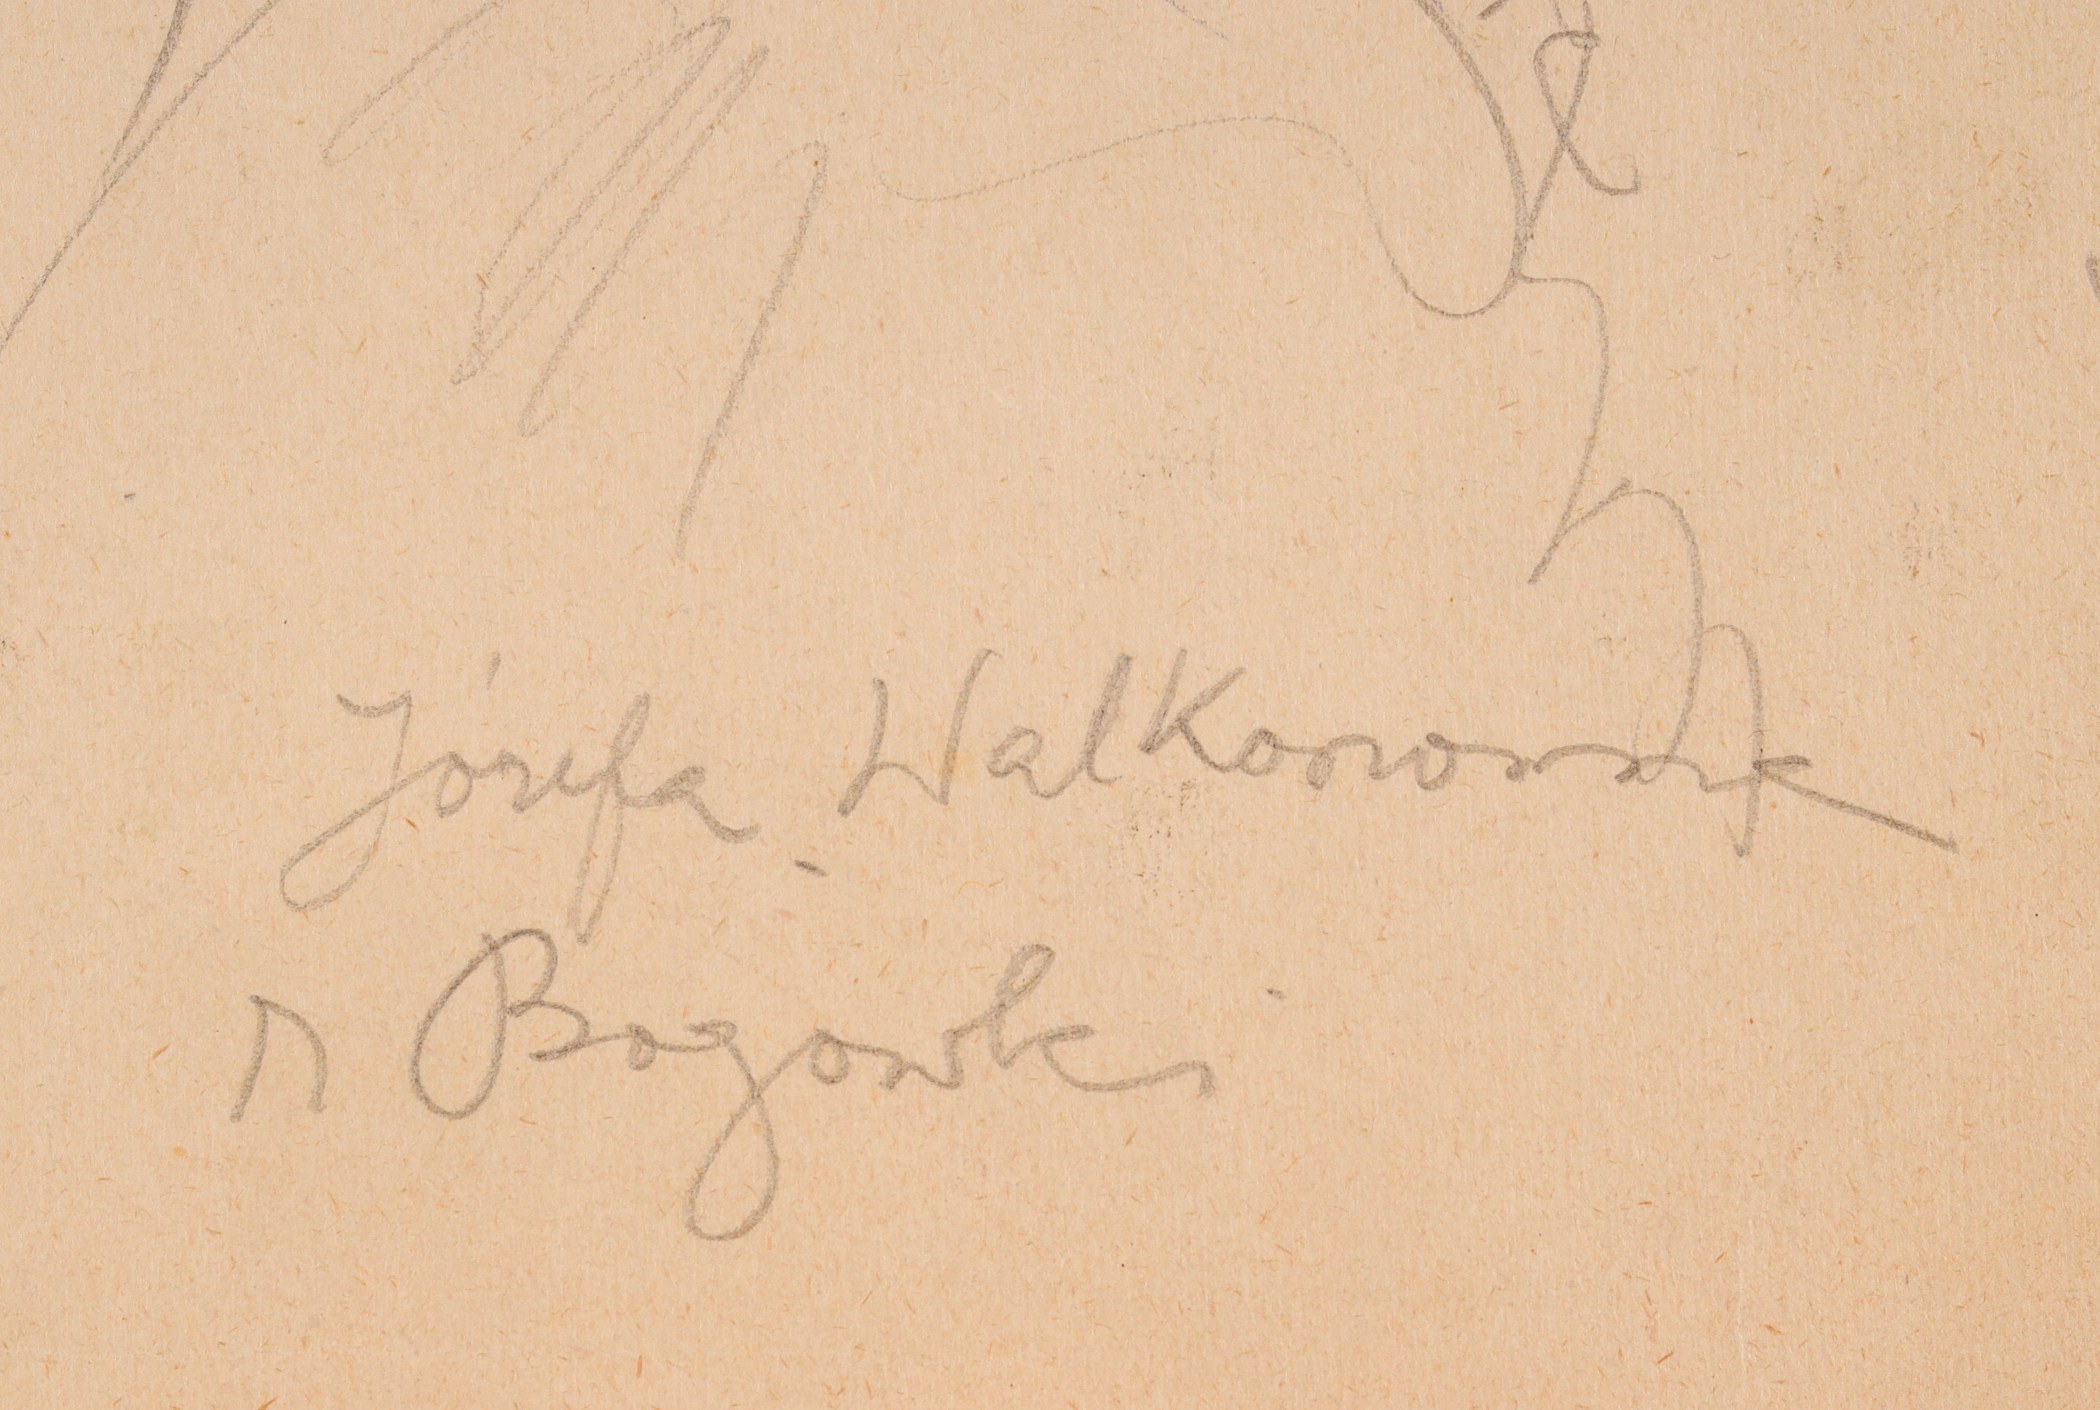 Józefa Walkonowna
Bogówki